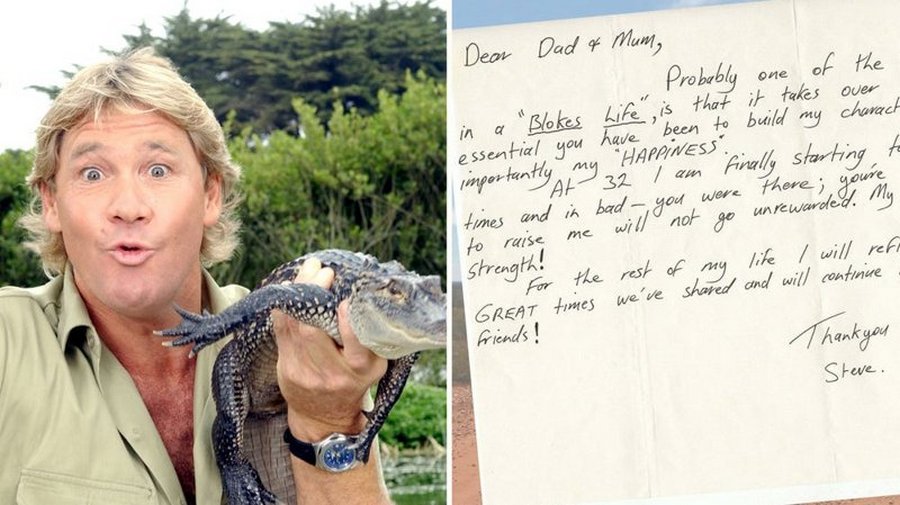 Dear Dad & Mum,
Probably one of the
in a "Blokes Life", is that it takes over
essential you have been to build my charact
importantly my "HAPPINESS".
At 32 I am finally starting to
times and in bad — you were there; you're
to raise me will not go unrewarded. My
strength!
For the rest of my life I will refl
GREAT times we've shared and will continue
friends!
Thankyou
Steve.